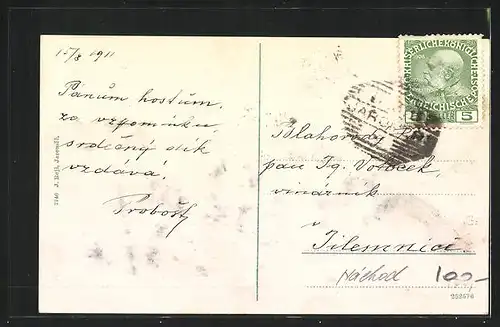 15/8 1911
Pánům hostům,
za vzpomínku
srdečný dík
vzdává
Probošt
5140 J. Rejl, Jaroměř.
KAISERLICHE KÖNIGLICHE
ÖSTERREICHISCHE
5
Blahorodý
pan Ig. Vobceek,
vinárník
v
Jilemnici.
Náchod 100,-